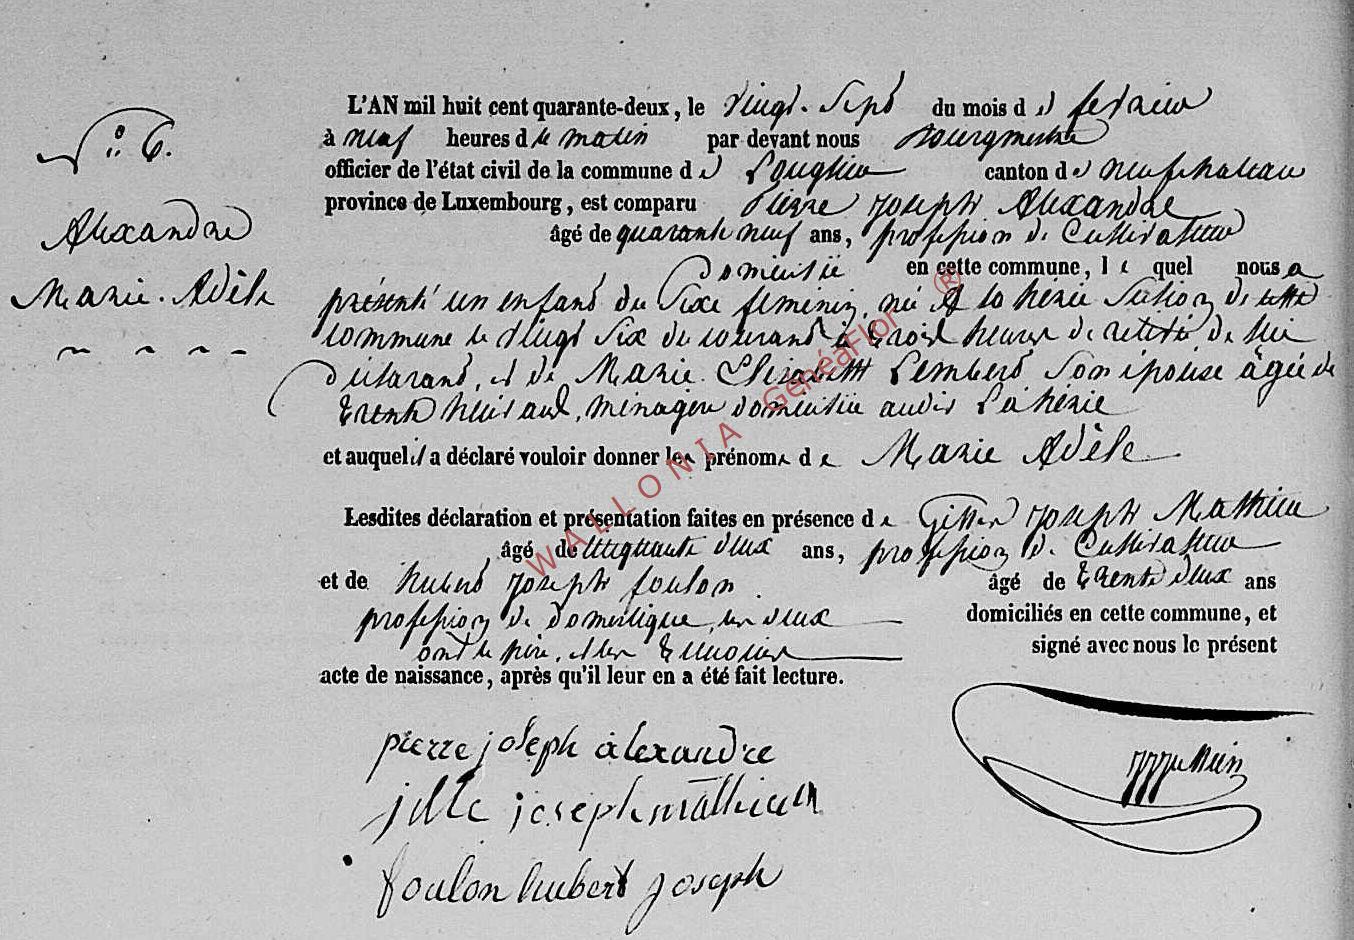 N.° 6.
Alexandre
Marie-Adèle
L'AN mil huit cent quarante-deux, le vingt-sept du mois de fevrier
à neuf heures de matin par devant nous Bourgmestre
officier de l'état civil de la commune de Longlier canton de neufchateau
province de Luxembourg, est comparu Pierre Joseph Alexandre
âgé de quarante neuf ans, profession de Cultivateur
Domicilié en cette commune, le quel nous a
présenté un enfant du Sexe féminin, né à la hérie Section de cette
commune le vingt Six du courant à trois heures de relevée de lui
Déclarant, et de Marie Elisabeth Lembert Son épouse âgée de
trente huit ans, ménagère domiciliée audit Lahérie
et auquel il a déclaré vouloir donner les prénoms de Marie Adèle
Lesdites déclaration et présentation faites en présence de Gilles Joseph Mathieu
âgé de cinquante deux ans, profession de Cultivateur
et de hubert Joseph foulon âgé de trente deux ans
profession de Domestique, les deux domiciliés en cette commune, et
ont le père, et les témoins signé avec nous le présent
acte de naissance, après qu'il leur en a été fait lecture.
pierre joseph alexandre
jille joseph mathieu
foulon hubert joseph
WALLONIA GenéaFlor ®